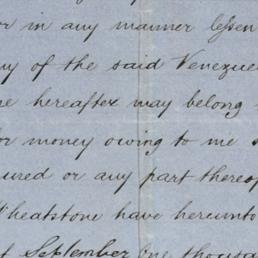 or in any manner lessen
ny of the said Venezuel
ne hereafter may belong
or money owing to me s
ured or any part thereof
Wheatstone have hereunto
of September One thousa